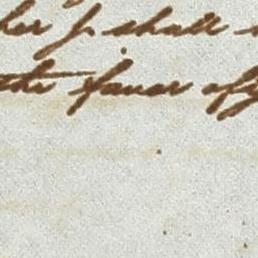 her I shall
the favor of